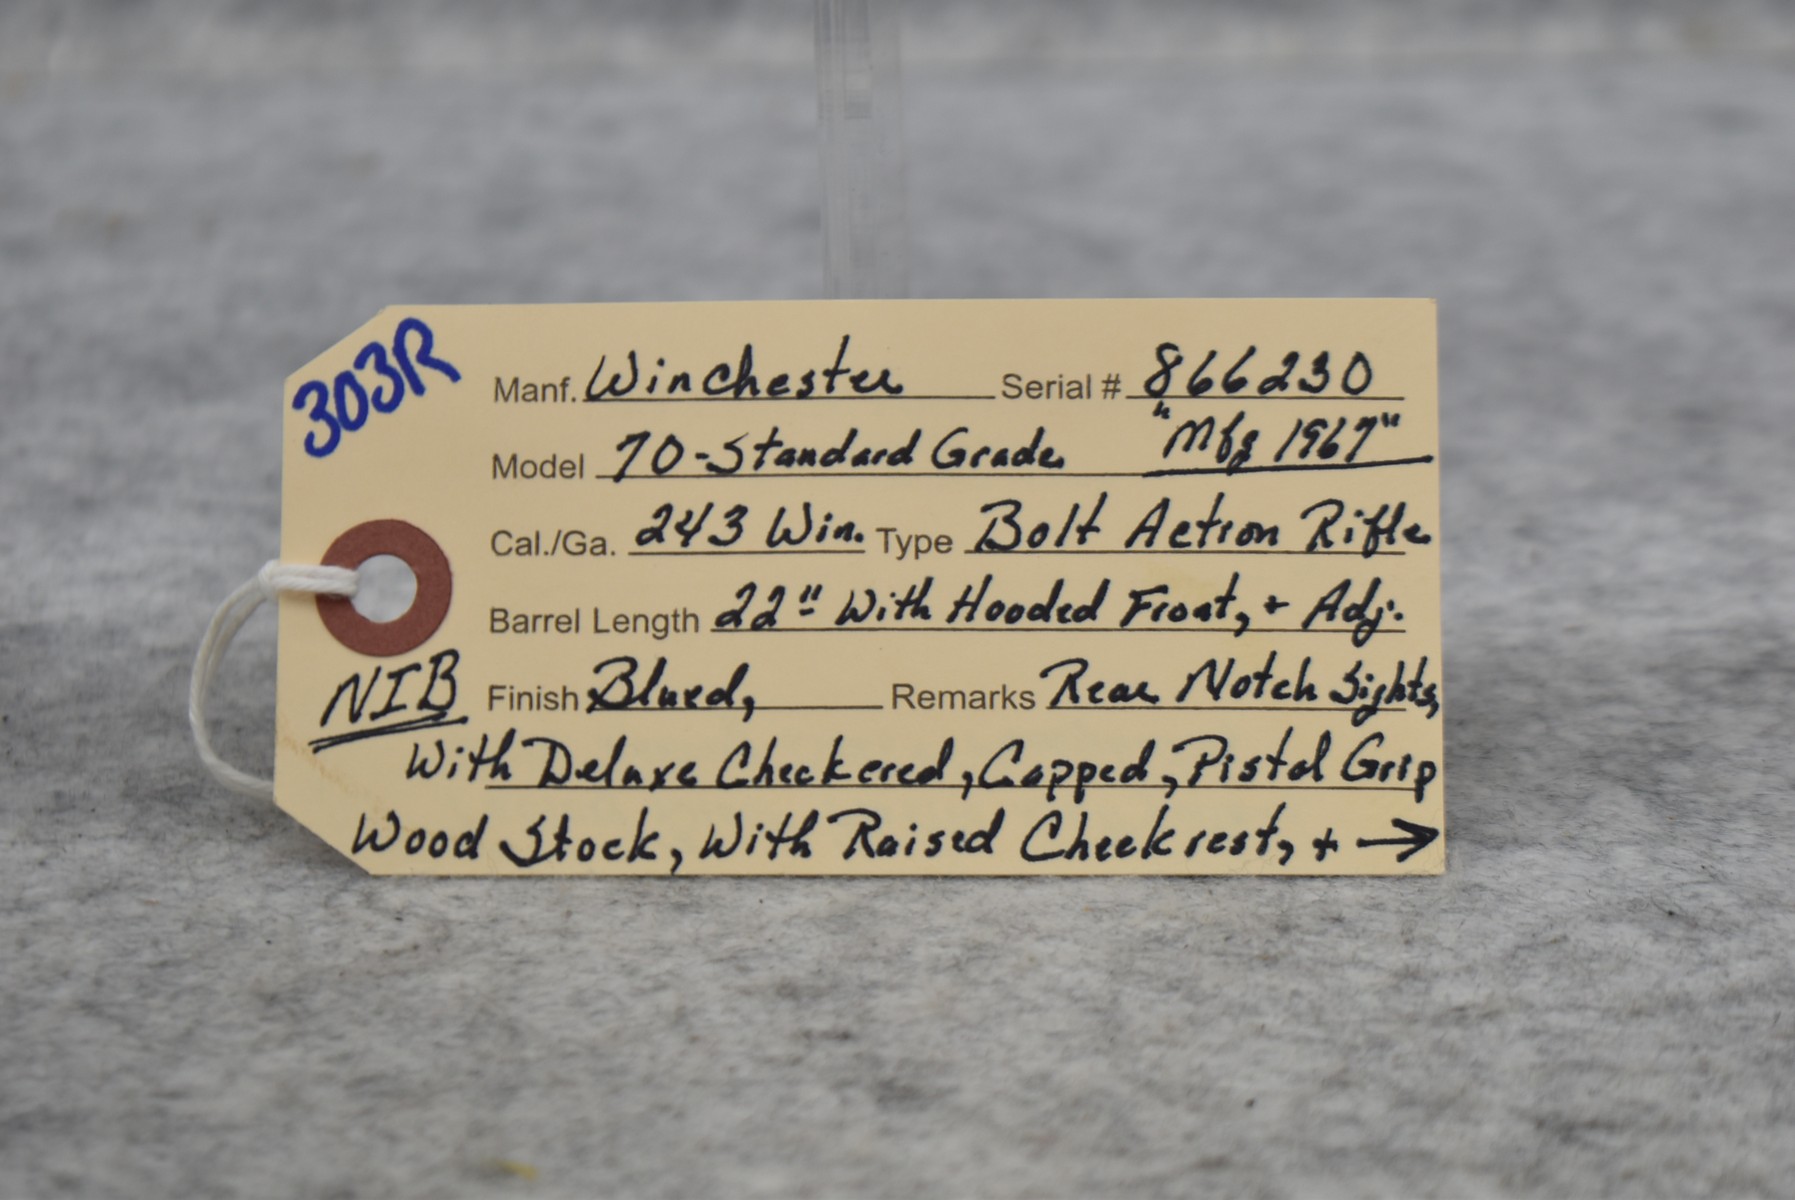 303R
Manf. Winchester Serial # 866230
Model 70-Standard Grade "Mfg 1967"
Cal./Ga. 243 Win. Type Bolt Action Rifle
Barrel Length 22" With Hooded Front, + Adj.
NIB Finish Blued, Remarks Rear Notch Sights,
With Deluxe Checkered, Capped, Pistol Grip
Wood Stock, With Raised Cheekrest, + →